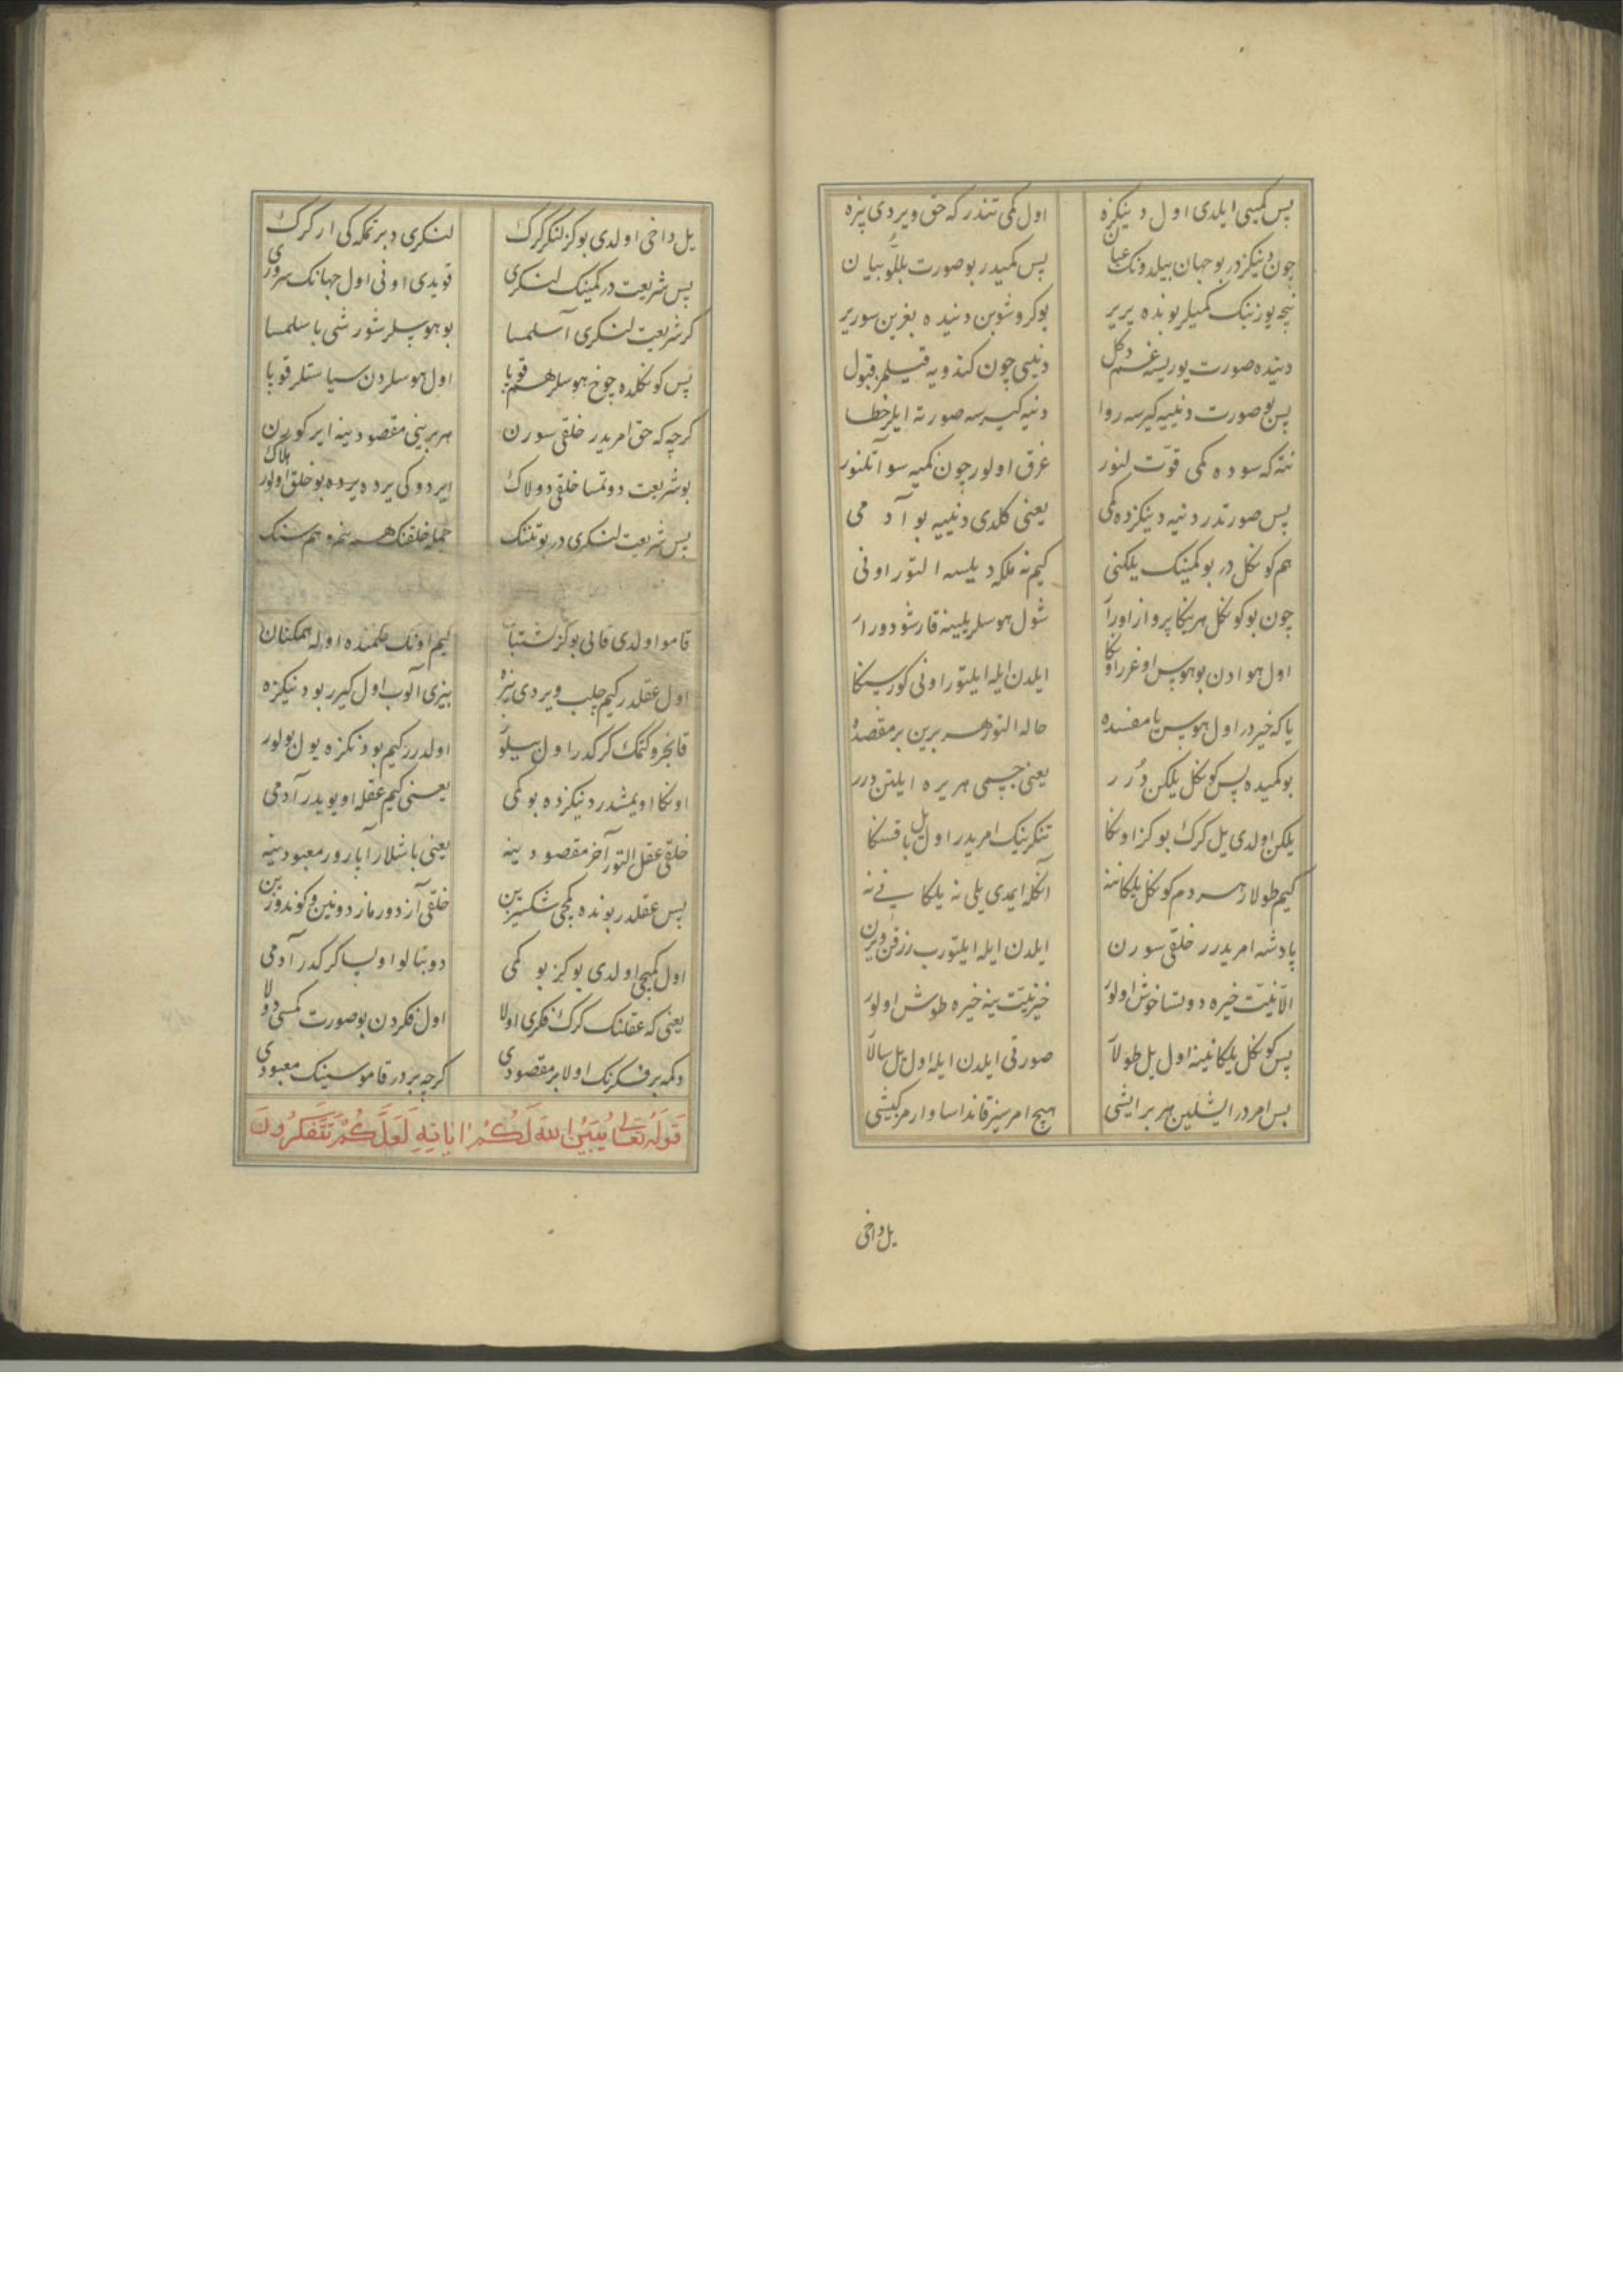 پس کمیی ایلدی اول دینکزه اول کمی تندر که حق ویردی بزه
چون دینکزدر بو جهان بیلدونک عیان پس کمیدر بو صورت بللو بیان
نیچه یوز بینک کمیلر بونده یریر بوکروشوبن دنیده بغرین سوریر
دنیده صورت یوریسه غم دکل دنییی چون کندویه قیلمز قبول
پس بو صورت دنییه کیرسه روا دنیه کیرسه صورته ایلر خطا
نته که سوده کمی قوت لنور غرق اولور چون کمیه سو آتلنور
پس صورتدر دنیه دینکزده کمی یعنی کلدی دنییه بو آدمی
هم کونکل در بو کمینک یلکنی کیم نه ملکه دیلسه التور اونی
چون بو کونکل هر ینکا پرواز اورآ شول هوسلر یلینه قارشو دورار
اول هوادن بو هوس اوغرر اونکا ایلدن ایله ایلتور اونی کورسنکا
یا که خیردر اول هوس یا مفسده حاله التور هر برین بر مقصده
بو کمیده پس کونکل یلکن دُرر یعنی جسمی هر یره ایلتن درر
یلکن اولدی یل کرک بو کز اونکا تنکرینک امریدر اول یل باقسنکا
کیم طولار هر دم کونکل یلکاننه آنکله ایمدی یلی نه یلکانی نه
پادشه امریدرر خلقی سورن ایلدن ایله ایلتورب رزقن ویرن
الا نیت خیره دوتسا خوش اولور خیر نیت ینه خیره طوش اولور
پس کونکل یلکانینه اول یل طولآ صورتی ایلدن ایله اول یل سالآ
پس امردر ایشلین هر بر ایشی هیچ امرسیز قانداسا وارمز کیشی
یل داخی
یل داخی اولدی بو کز لنکر کرک لنکری دبرتمکه کی ار کرک
پس شریعت در کمینک لنکری قویدی اونی اول جهانک سروری
کر شریعت لنکری آسلمسا بو هوسلر شورشی باسلمسا
پس کونکلده چوخ هوسلر هم قوپا اول هوسلردن سیاستلر قوپا
کرچه که حق امریدر خلقی سورن هر برینی مقصودینه ایر کورن
بو شریعت دوتمسا خلقی دولاک ایردوکی یرده یرده بو خلق اولور هلاک
پس شریعت لنکری در بو تننک جمله خلقنک هم بنم و هم سنک
قامو اولدی قانی بو کز کشتبان کیم اونک حکمنده اوله همکنان
اول عقلدر کیم چلب ویردی بزه بیزی آلوب اول کیرر بو دنیکزه
قانجرو کتمک کرکدر اول بیلور اولدرر کیم بو دنکزه یول بولور
اونکا اویمشدر دنیکزده بو کمی یعنی کیم عقله اویوبدر آدمی
خلقی عقل التور آخر مقصودینه یعنی باشلار آپارور معبودینه
پس عقلدر بونده کمچی شکسیزین خلقی آزدورماز دونین و کوندوزین
اول کمچی اولدی بو کز بو کمی دوبتالو اوپسا کرکدر آدمی
یعنی که عقلنک کرک فکری اولا اول فکردن بو صورت کمسی دولا
دکمه بر فکرنک اولا بر مقصودی کرچه بردر قاموسینک معبودی
قَولُهُ تَعَالى يُبَيِّنُ اللهُ لَكُمْ اٰيَاتِهِ لَعَلَّكُمْ تَتَفَكَّرُونَ